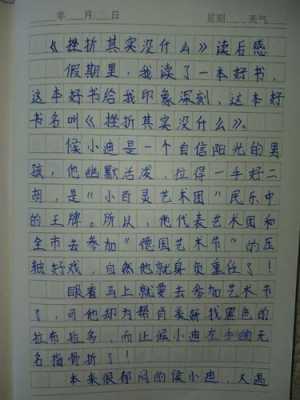 年 月 日 星期 天气
《挫折其实没什么》读后感
假期里，我读了一本好书，
这本好书给我印象深刻，这本好
书名叫《挫折其实没什么》。
侯小迪是一个自信阳光的男
孩，他幽默活泼，拉得一手好二
胡，是“小百灵艺术团”民乐中
的王牌。所以，他代表艺术团和
全市去参加“德国艺术节”的压
轴好戏，自然他就身负重任了！
眼看马上就要去参加艺术节
了，可他却为帮贞美解救黑色的
拉布拉多，而让侯小迪左手的无
名指骨折了！
本来很郁闷的侯小迪，又遇